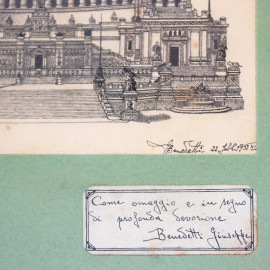 Benedetti 22
Come omaggio e in segno
di profonda devozione
Benedetti Giuseppe